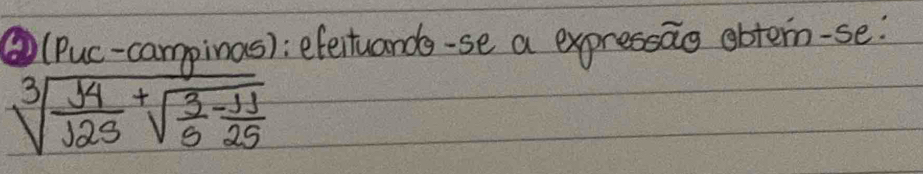 ② (Puc-campinas): efeituando-se a expressão obtém-se:
∛(14/125 + √(3/5 - 11/25))